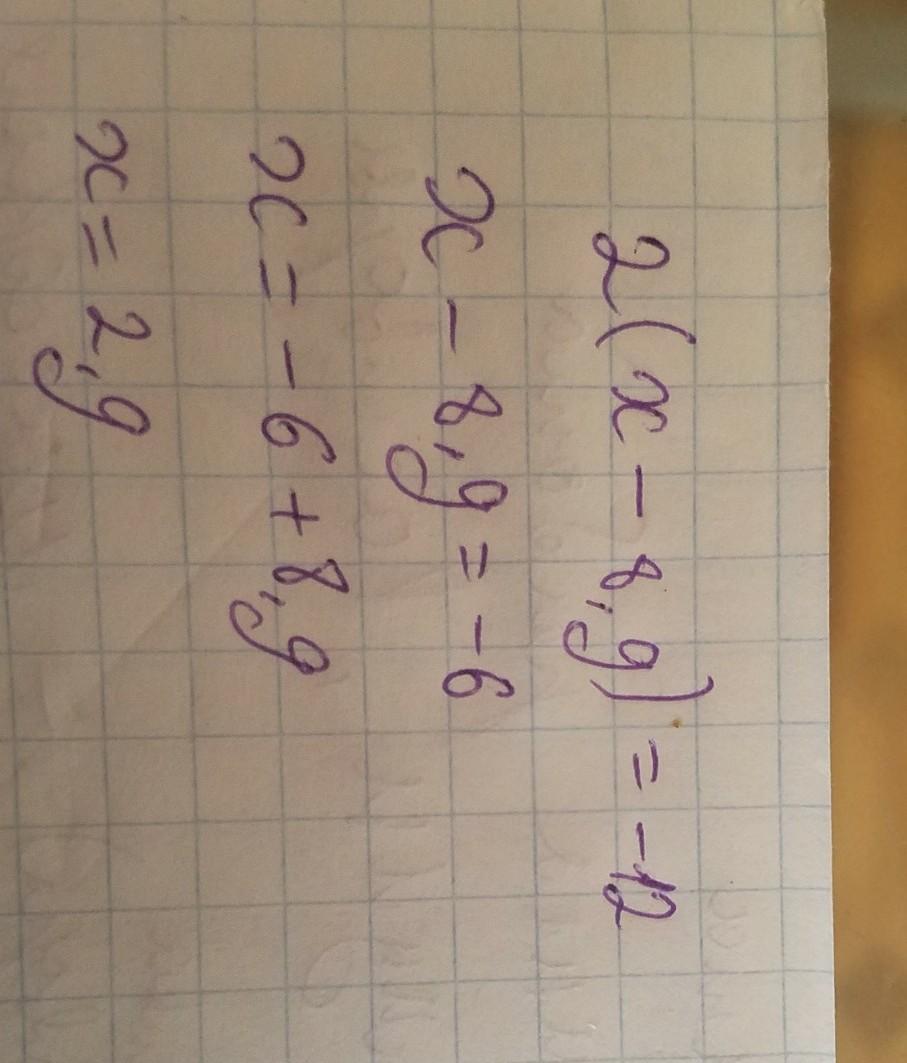 2(x - 8,9) = -12
x - 8,9 = -6
x = -6 + 8,9
x = 2,9